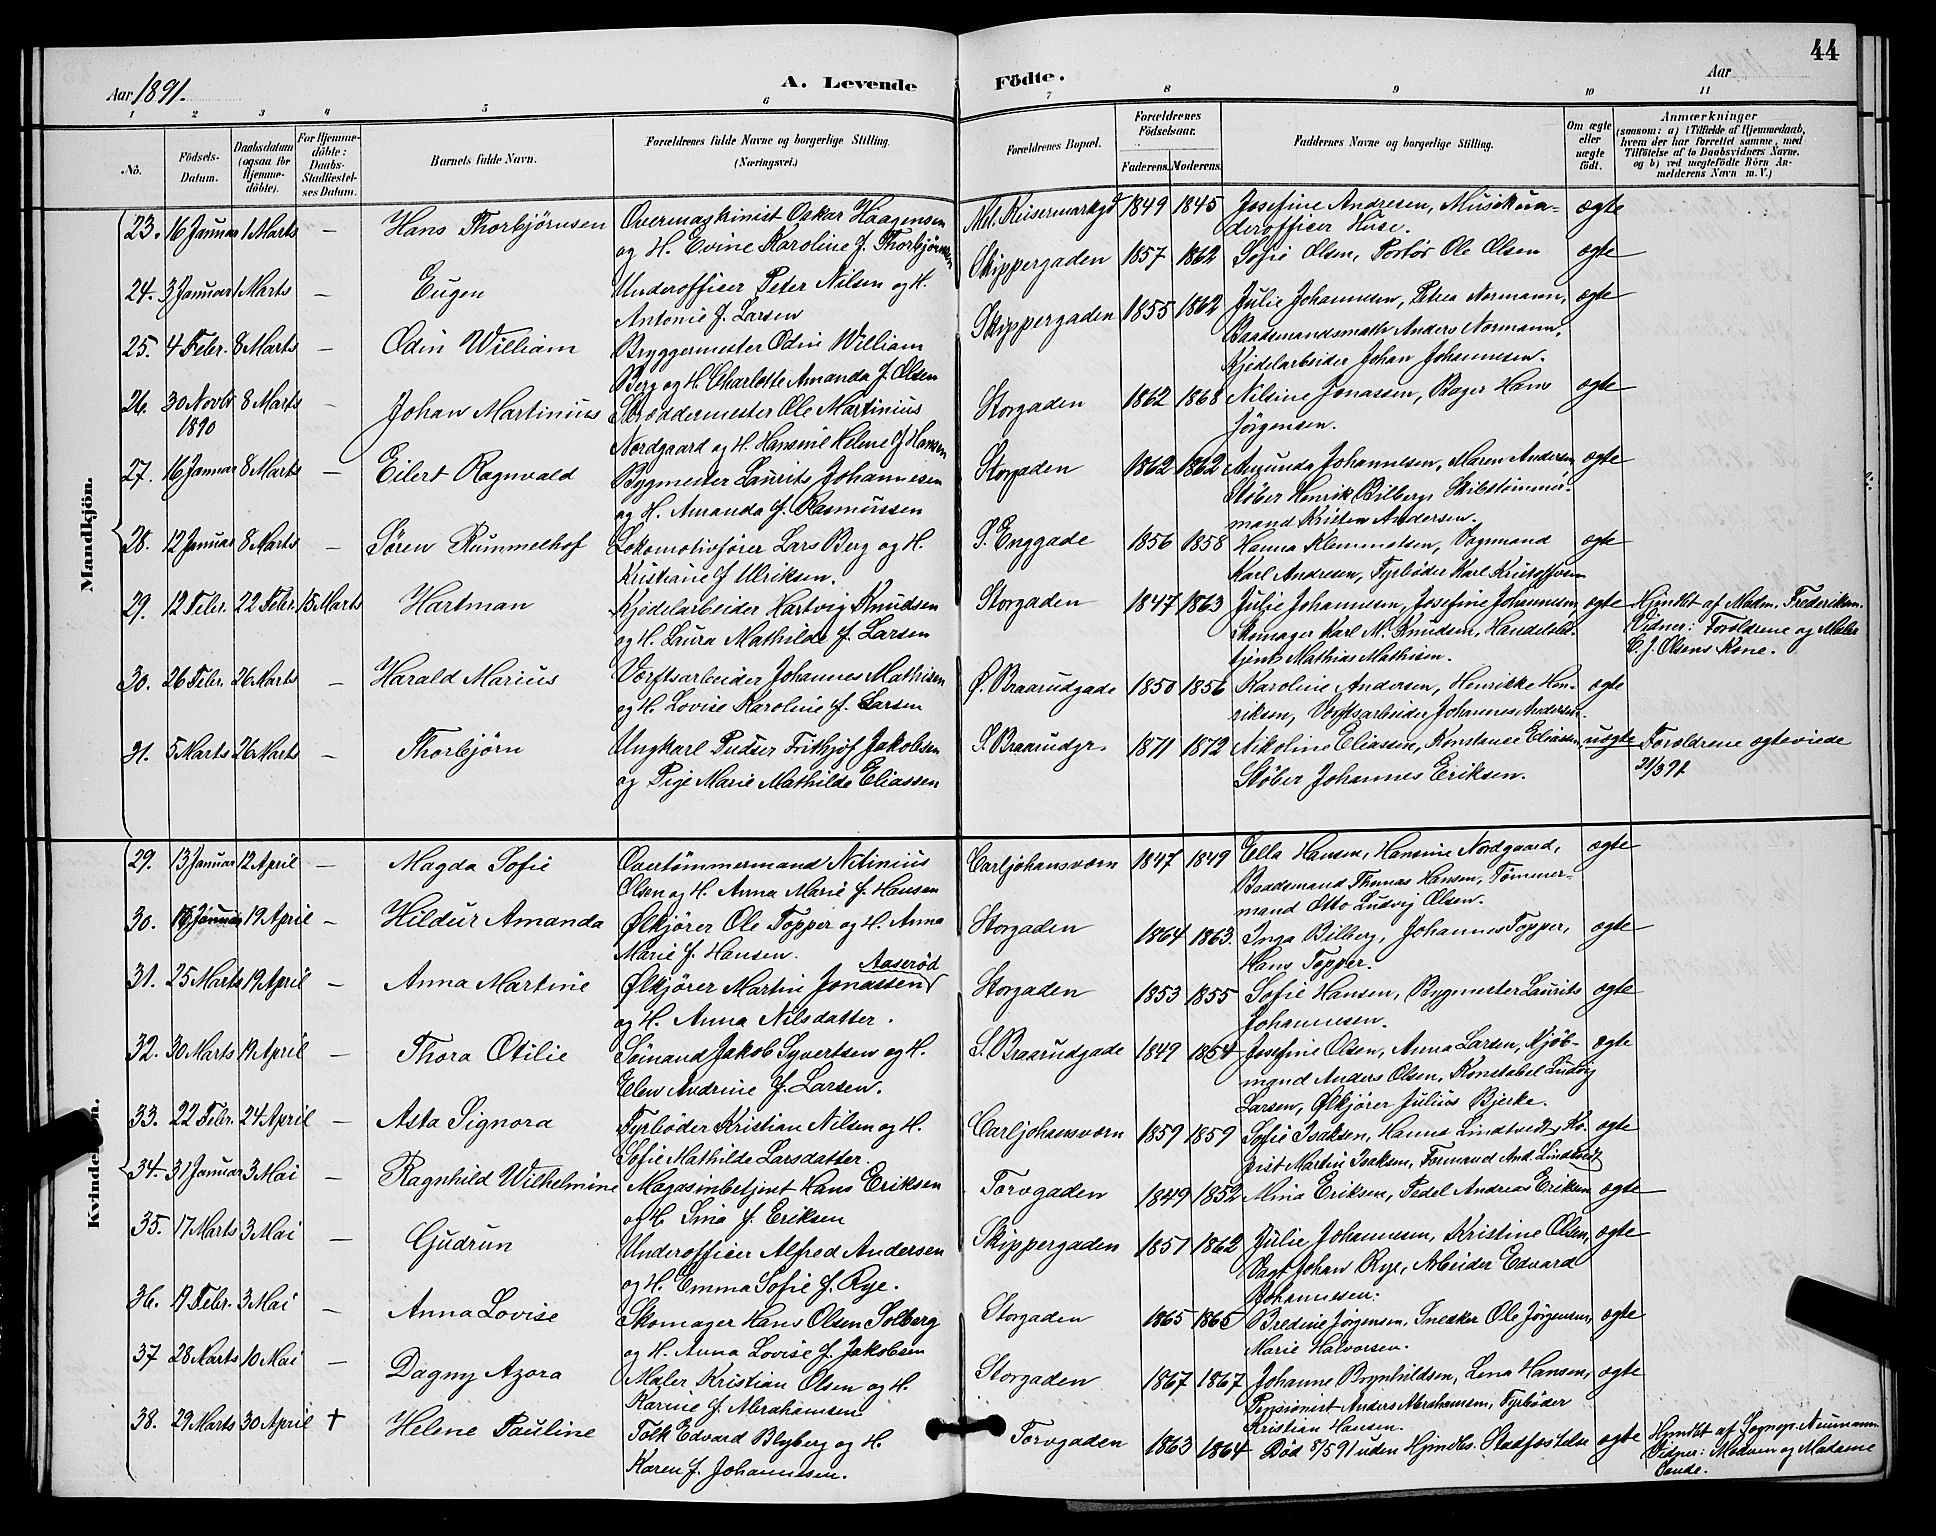 44
Aar 1891.
A. Levende Födte.
Aar
1 2 3 4 5 6 7 8 9 10 11
No.
Födsels-Datum.
Daabsdatum (ogsaa for Hjemme-döbte).
For Hjemme-döbte: Daabs-Stadfæstel-ses Datum.
Barnets fulde Navn.
Forældrenes fulde Navne og borgerlige Stilling. (Næringsvei.)
Forældrenes Bopæl.
Forældrenes Födselsaar.
Faderens. Moderens.
Faddernes Navne og borgerlige Stilling.
Om ægte eller uægte födt.
Anmærkninger
(saasom: a) i Tilfælde af Hjemmedaab,
hvem der har forrettet samme, med
Tilföielse af to Daabsvidners Navne,
og b) ved uægtefödte Börn An-
melderens Navn m. V.)
Mandkjön.
23. 16 Januar 1 Marts — Hans Thorbjörnsen
Overmaskinist Oskar Haagensen
og H. Evine Karoline f. Thorbjörnsen
1849 1845 Josefine Andresen, Musikun-
derofficer Huse. ægte
24. 3 Januar 1 Marts — Eugen
Underofficer Peter Nilsen og H.
Antonie f. Larsen
Skippergaden 1857 1862 Sofie Olsen, Portör Ole Olsen ægte
25. 4 Febr. 8 Marts — Odin William
Bryggermester Odin William
Berg og H. Charlotte Amanda f. Olsen
Skippergaden 1855 1862 Julie Johannesen, Petra Normann,
Baadsmandsmath Anders Normann,
Kjedelarbeider Johan Johannesen. ægte
26. 30 Novbr 1890 8 Marts — Johan Martinius
Skræddermester Ole Martinius
Nordgaard og H. Hansine Helene f. Hansen
Storgaden 1862 1868 Nilsine Jonassen, Bager Hans
Jörgensen. ægte
27. 16 Januar 8 Marts — Eilert Ragnvald
Bygmester Laurits Johannesen
og H. Amanda f. Rasmussen
Storgaden 1862 1862 Amunda Johannesen, Maren Andersen
Stöber Henrik Bilberg, Skibstömmer-
mand Kristen Andersen. ægte
28. 12 Januar 8 Marts — Sören Rummelhof
Lokomotivförer Lars Berg og H.
Kristiane f. Ulriksen.
S. Enggade 1856 1858 Hanna Klemmetsen, Vognmand
Karl Andresen, Fyrböder Karl Kristoffersen ægte
29. 12 Febr. 22 Febr. 15 Marts Hartman
Kjedelarbeider Hartvig Knudsen
og H. Laura Mathilde f. Larsen
Storgaden 1847 1863 Julie Johannesen, Josefine Johannesen,
Skomager Karl M. Knudsen, Handelsbe-
tjent Mathias Mathisen. ægte
Hjmdbt af Madm. Frederiksen.
Vidner: Forældrene og Maler
C. J. Olsens Kone.
30. 26 Febr. 26 Marts — Harald Marius
Værftsarbeider Johannes Mathisen
og H. Lovise Karoline f. Larsen
Ö. Braarudgade 1850 1856 Karoline Andersen, Henrikke Hen-
riksen, Værftsarbeider Johannes Andersen. ægte
31. 5 Marts 26 Marts — Thorbjörn
Ungkarl Pudser Frithjof Jakobsen
og Pige Marie Mathilde Eliassen
S. Braarudgr. 1871 1872 Nikoline Eliassen, Konstanse Eliassen
Stöber Johannes Eriksen. uægte
Forældrene ægteviede
31/3 91
Kvindekjön.
29. 13 Januar 12 April — Magda Sofie
Overtömmermand Nitinius
Olsen og H. Anna Marie f. Hansen
Carljohansværn 1847 1849 Ella Hansen, Hansine Nordgaard,
Baadsmand Thomas Hansen, Tömmer-
mand Otto Ludvig Olsen. ægte
30. Januar 19 April — Hildur Amanda
Ölkjörer Ole Topper og H. Anna
Marie f. Hansen.
Storgaden 1864 1863. Inga Bilberg, Johannes Topper,
Hans Topper. ægte
31. 25 Marts 19 April — Anna Martine
Ölkjörer Martin Jonassen Aaseröd
og H. Anna Nilsdatter.
Storgaden 1853 1855 Sofie Hansen, Bygmester Laurits
Johannesen. ægte
32. 30 Marts 19 April — Thora Otilie
Sömand Jakob Syvertsen og H.
Elen Andrine f. Larsen.
S. Braarudgade 1849 1854 Josefine Olsen, Anna Larsen, Kjöb-
mand Anders Olsen, Konstabel Ludvig
Larsen, Ölkjörer Julius Bjerke. ægte
33. 22 Febr. 24 April — Asta Signora
Fyrböder Kristian Nilsen og H.
Sofie Mathilde Larsdatter.
Carljohansværn 1859 1859 Sofie Isaksen, Hanna Lindtvedt,
Martin Isaksen, Formand And. Lindtvedt ægte
34. 31 Januar 3 Mai — Ragnhild Wilhelmine
Magasinbetjent Hans Eriksen
og H. Sina f. Eriksen
Torvgaden 1849 1852 Mina Eriksen, Pedel Andreas Eriksen ægte
35. 17 Marts 3 Mai — Gudrun
Underofficer Alfred Andersen
og H. Emma Sofie f. Rye.
Skippergaden 1851 1862 Julie Johannesen, Kristine Olsen,
Vagt Johan Rye, Arbeider Edvard
Johannesen. ægte
36. 19 Febr. 3 Mai — Anna Lovise
Skomager Hans Olsen Solberg
og H. Anna Lovise f. Jakobsen
Storgaden 1865 1865 Bredine Jörgensen, Snedker Ole Jörgensen,
Marie Halvorsen. ægte
37 28 Marts 10 Mai — Dagny Azora
Maler Kristian Olsen og H.
Karine f. Abrahamsen
Storgaden 1867 1867 Johanne Brynhildsen, Lena Hansen,
Pensionist Anders Abrahamsen, Fyrböder
Kristian Hansen. ægte
38. 29 Marts 30 April † Helene Pauline
Tolk Edvard Blyberg og H.
Karen f. Johannesen.
Torvgaden 1863 1864 Död 8/5 91 uden Hjmdbs. Stadfæstelse ægte
Hjmdbt af Sognepr. Neumann
Vidner: Modren og Madame